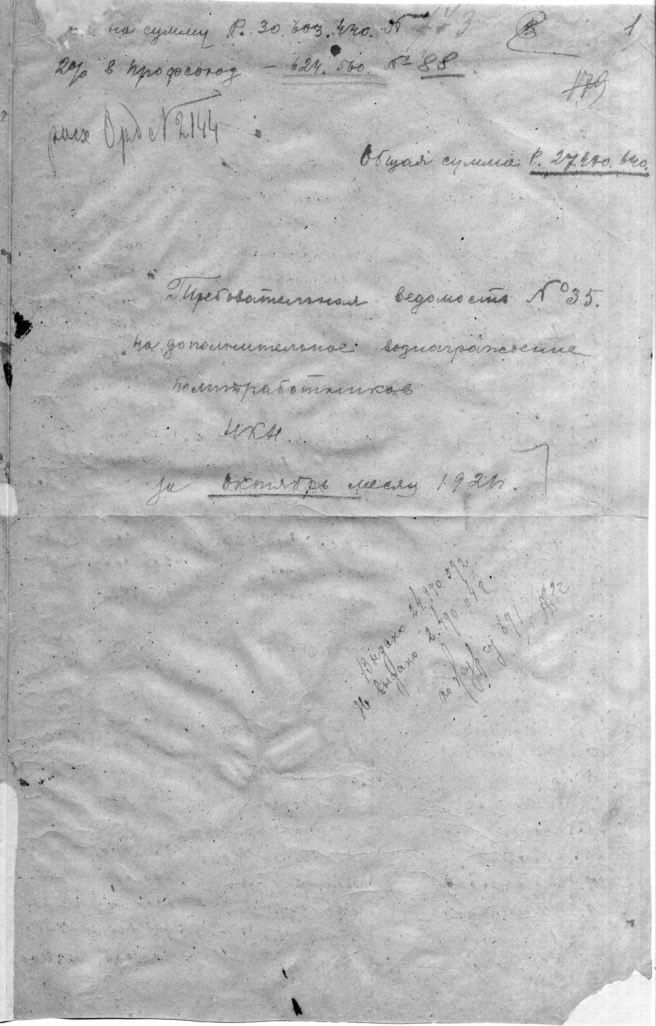 на сумму Р. 30.603.440. N 173
1
2% в профсоюз – 624.560. № 88
179
расх Орд N 2144
Общая сумма Р. 27.480.640.
Требовательная ведомость № 35.
на дополнительное вознаграждение
политработников
НКН.
за октябрь месяц 192 г.
Выдано 24.990.592
Не выдано 2.490.048
по